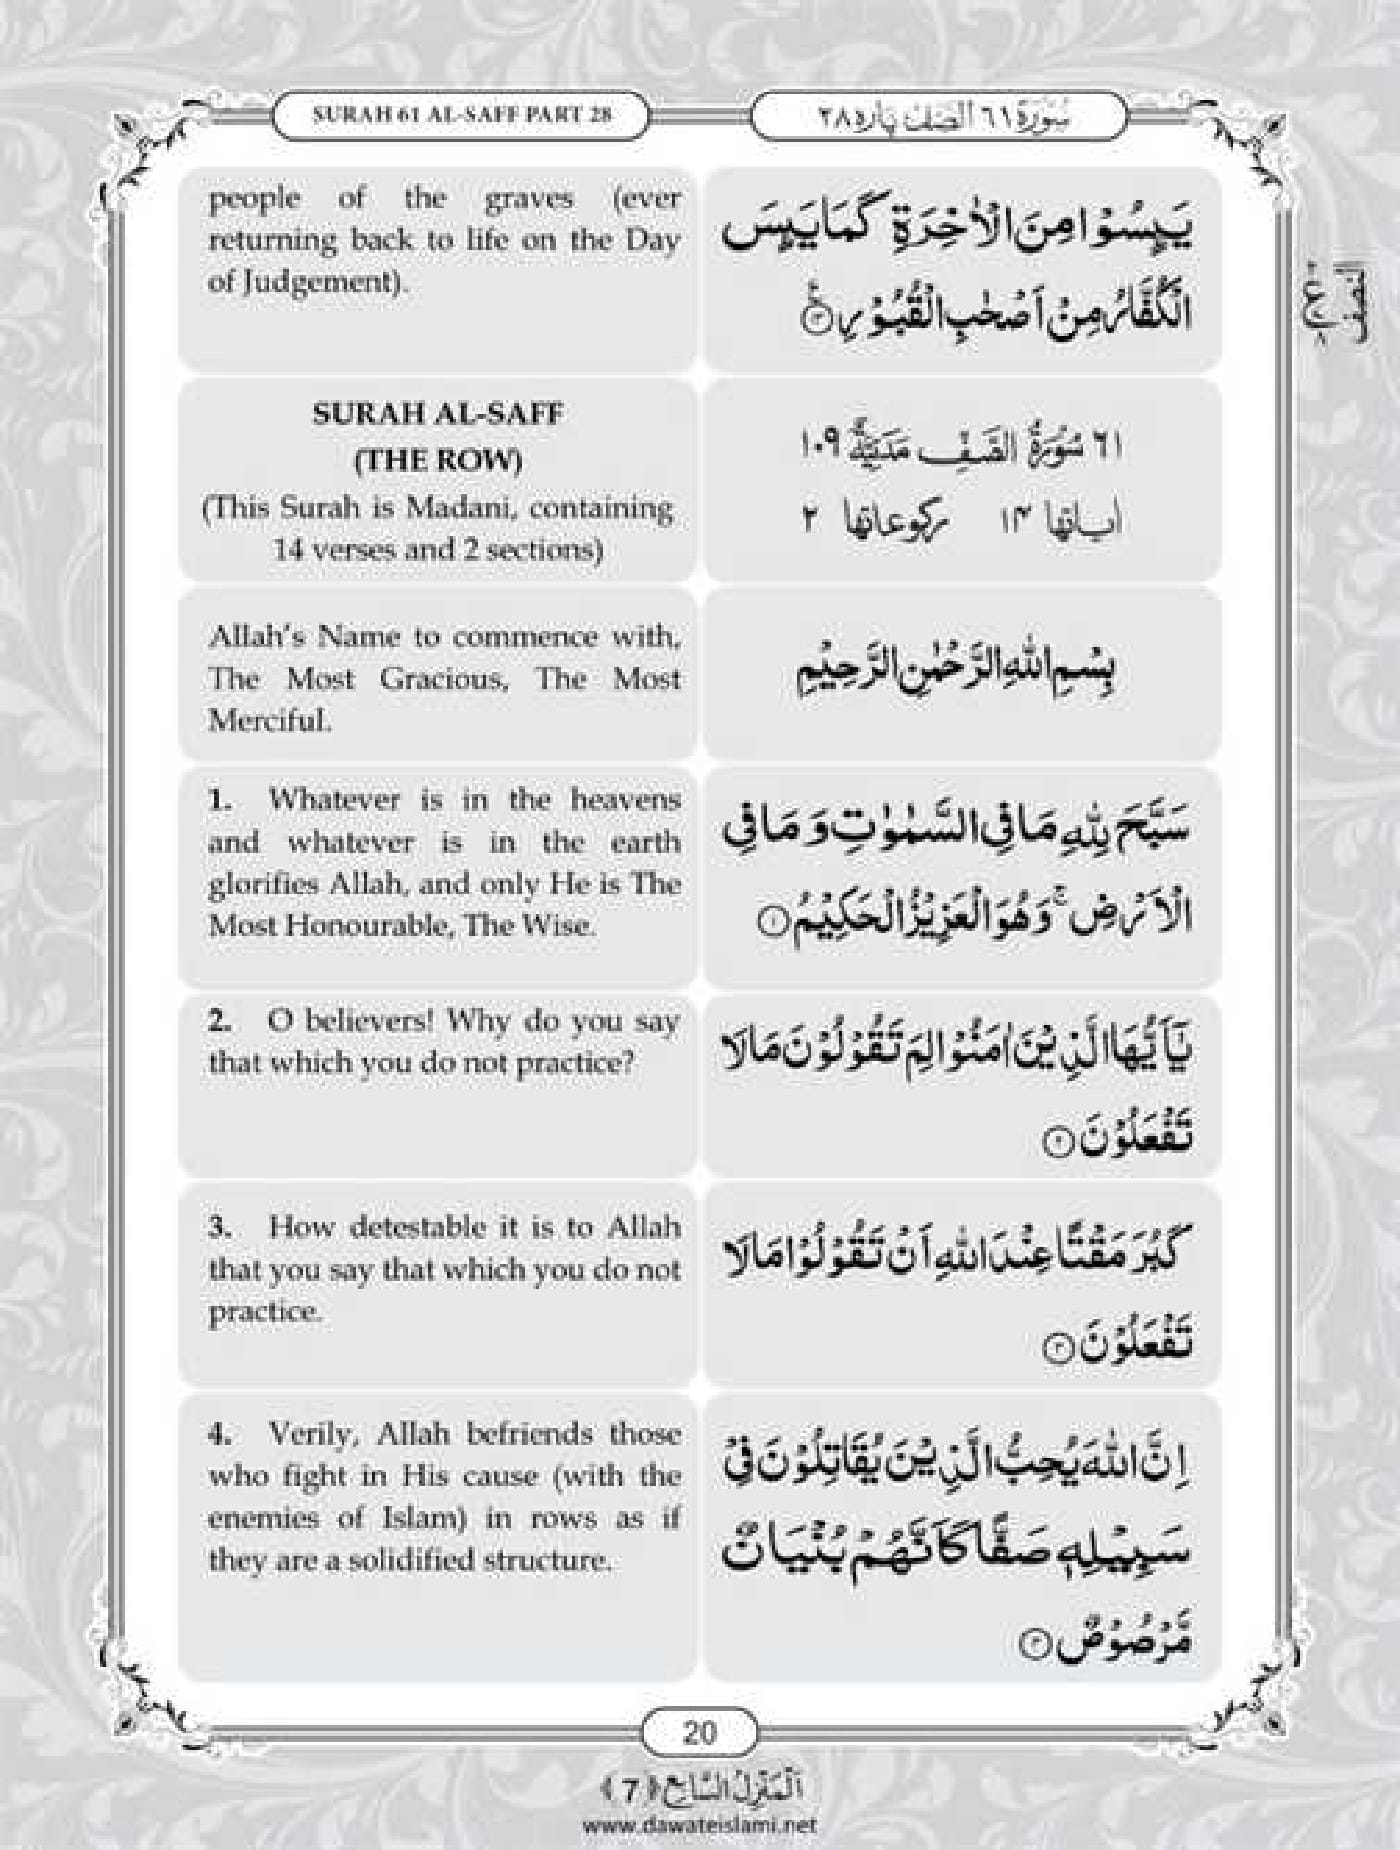 SURAH 61 AL-SAFF PART 28
سُوْرَة ٦١ الصَّف پاره ٢٨
people of the graves (ever
returning back to life on the Day
of Judgement).
يَىِٕسُوْا مِنَ الْاٰخِرَةِ كَمَا يَىِٕسَ
الْكُفَّارُ مِنْ اَصْحٰبِ الْقُبُوْرِ ۝۱۳
النصف
SURAH AL-SAFF
(THE ROW)
(This Surah is Madani, containing
14 verses and 2 sections)
٦١ سُوْرَةُ الصَّفِّ مَدَنِيَّةٌ ١٠٩
اٰياتها ١٤ ركوعاتها ٢
Allah's Name to commence with,
The Most Gracious, The Most
Merciful.
بِسْمِ اللّٰهِ الرَّحْمٰنِ الرَّحِيْمِ
1. Whatever is in the heavens
and whatever is in the earth
glorifies Allah, and only He is The
Most Honourable, The Wise.
سَبَّحَ لِلّٰهِ مَا فِی السَّمٰوٰتِ وَ مَا فِی
الْاَرْضِ ۚ وَ هُوَ الْعَزِيْزُ الْحَكِيْمُ ۝۱
2. O believers! Why do you say
that which you do not practice?
يٰۤاَيُّهَا الَّذِيْنَ اٰمَنُوْا لِمَ تَقُوْلُوْنَ مَا لَا
تَفْعَلُوْنَ ۝۲
3. How detestable it is to Allah
that you say that which you do not
practice.
كَبُرَ مَقْتًا عِنْدَ اللّٰهِ اَنْ تَقُوْلُوْا مَا لَا
تَفْعَلُوْنَ ۝۳
4. Verily, Allah befriends those
who fight in His cause (with the
enemies of Islam) in rows as if
they are a solidified structure.
اِنَّ اللّٰهَ يُحِبُّ الَّذِيْنَ يُقَاتِلُوْنَ فِیْ
سَبِيْلِهٖ صَفًّا كَاَنَّهُمْ بُنْيَانٌ
مَّرْصُوْصٌ ۝۴
20
اَلْمَنْزِلُ السَّابِع ﴿7﴾
www.dawateislami.net